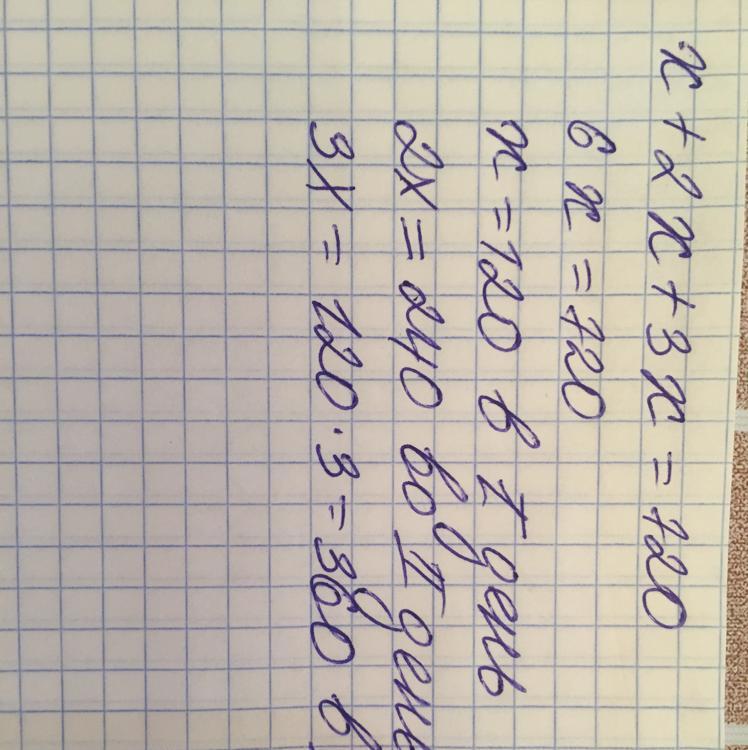 x + 2x + 3x = 720
6x = 720
x = 120 в I день
2x = 240 во II день
3x = 120 · 3 = 360 в